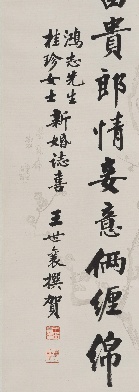 富貴郎情妾意倆纏綿
鴻志先生
桂珍女士新婚誌喜
王世襄撰賀